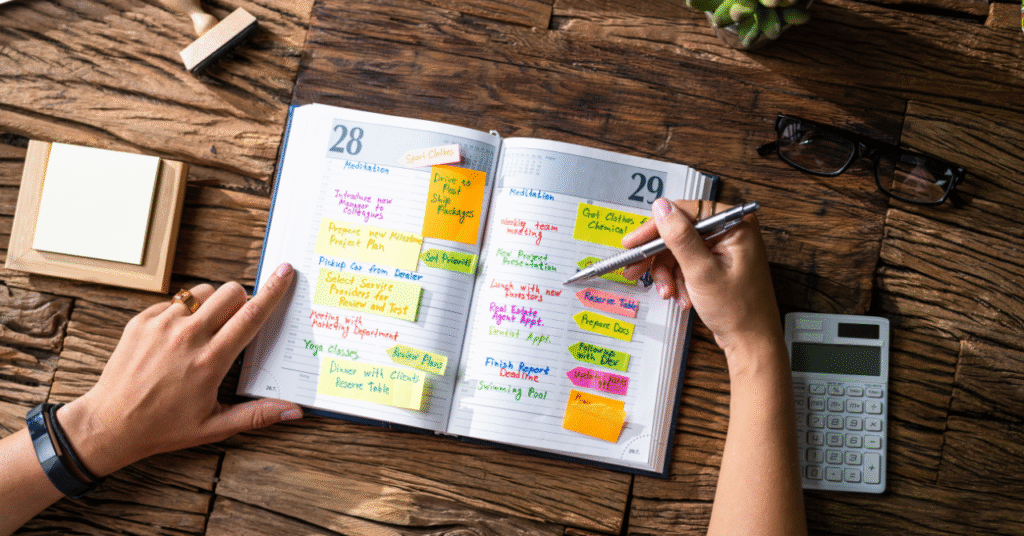 28
Sport Clothes
Meditation
Drive to
Post
Ship
Packages
Introduce new
Manager to
Colleagues
Prepare new Milestone
Project Plan
Set Prioriti
Pickup Car from Dealer
Select Service
Providers for
Review and Test
Meeting with
Marketing Department
Yoga Classes
Review Plans
Dinner with Clients
Reserve Table
29
Meditation
Get Clothes f
Chemical
Weekly team
meeting
New Project
Presentation
Lunch with new
Investors
Reserve Table
Real Estate
Agent Appt.
Prepare Docs
Dentist Appt.
Followup
with Dev
Finish Report
Deadline
Swimming Pool